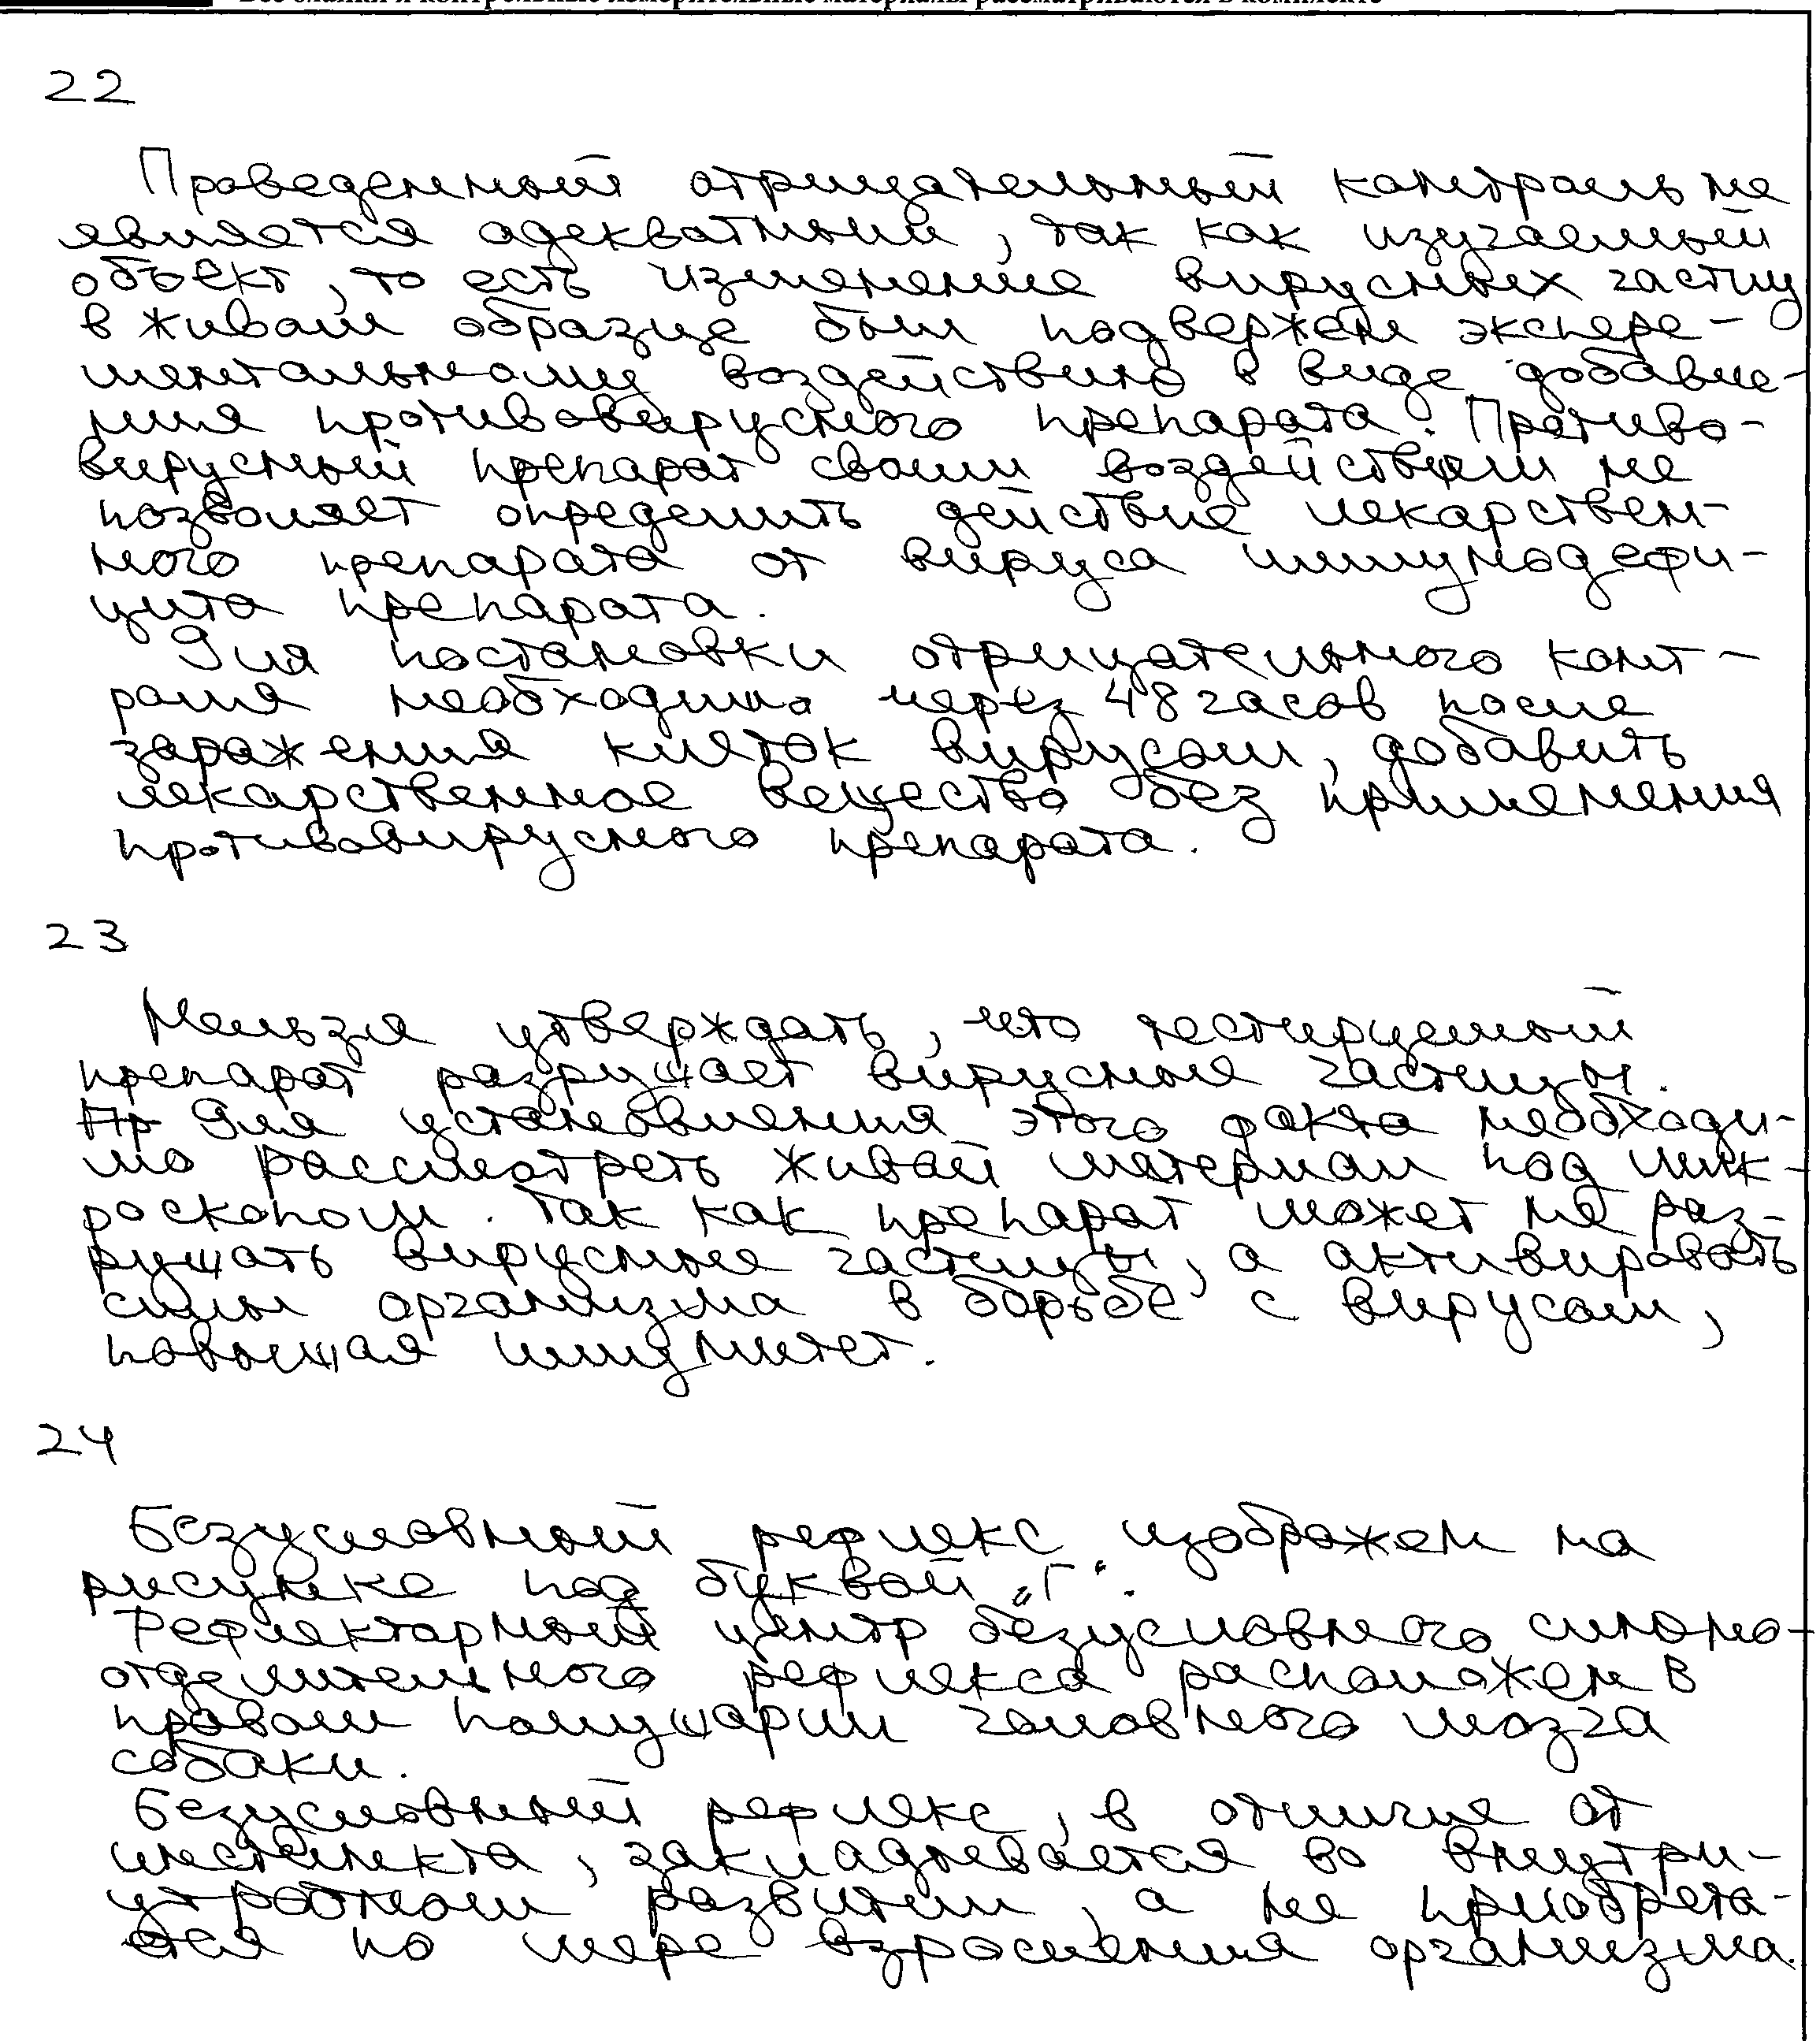 Все бланки и контрольные измерительные материалы рассматриваются в комплекте
22
Проведенный отрицательный контроль не
является адекватным, так как изучаемый
объект, то есть изменение вирусных частиц
в живом образце был подвержен экспере-
ментальному воздействию в виде добавле-
ния противовирусного препарата. Противо-
вирусный препарат своим воздействием не
позволяет определить действие лекарствен-
ного препарата от вируса иммунодефи-
цита препарата.
Для постановки отрицательного конт-
роля необходимо через 48 часов после
заражения клеток вирусом, добавить
лекарственное вещество без применения
противовирусного препарата.
23
Нельзя утверждать, что тестируемый
препарат разрушает вирусные частицы.
Пр Для установления этого факта необходи-
мо рассмотреть живой материал под мик-
роскопом. Так как препарат может не раз-
рушать вирусные частицы, а активировать
силы организма в борьбе с вирусом,
повышая иммунитет.
24
Безусловный рефлекс изображен на
рисунке под буквой „Г“.
Рефлекторный центр безусловного слюно-
отделительного рефлекса расположен в
правом полушарии головного мозга
собаки.
Безусловный рефлекс, в отличие от
инстинкта, закладывается во внутри-
утробном развитии, а не приобрета-
ется по мере взросления организма.